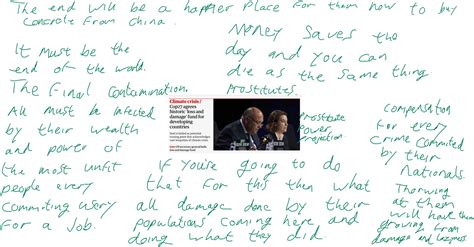 The end will be a happier place for them now to buy
concrete from China.
It must be the
end of the world.
The Final Contamination.
All must be infected
by their wealth
and power of
the most unfit
people every
Commiting every
for a Job.
Money saves the
day and you can
die as the same thing
Prostitutes.
Climate crisis/
Cop27 agrees
historic 'loss and
damage' fund for
developing
countries
Prostitute
Power
Projection
if you're going to do
that for this then what
all damage done by their
populations coming here and
doing what they did
compensation
for every
crime commited
by their
Nationals.
Thorwing
at them
will have them
growing from
damage and